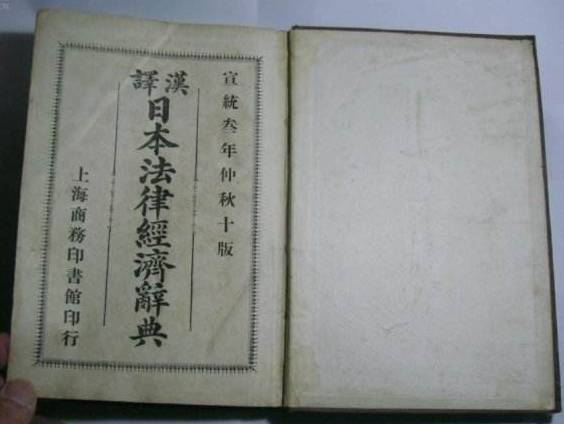 宣統叁年仲秋十版
漢譯
日本法律經濟辭典
上海商務印書館印行